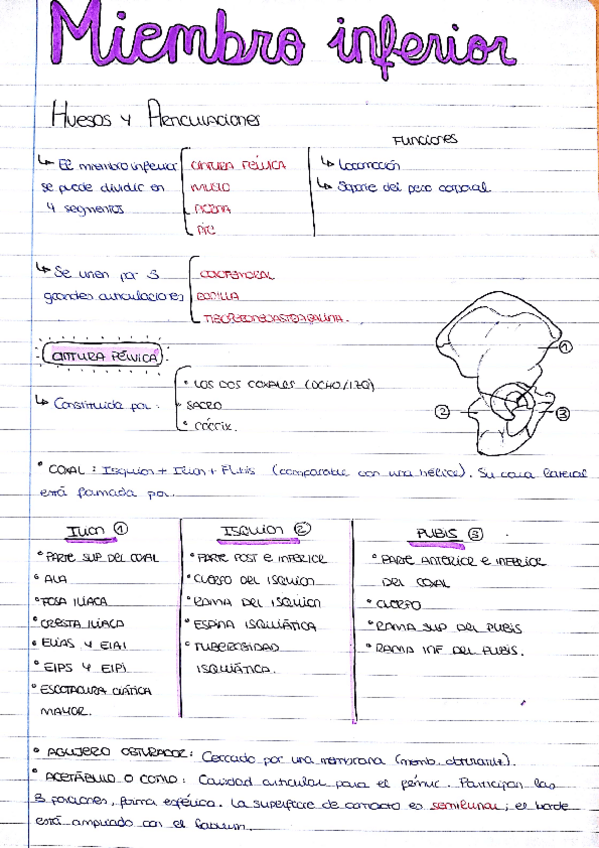 Miembro inferior
Huesos y Articulaciones
Funciones
↳ El miembro inferior se puede dividir en 4 segmentos
CINTURA PÉLVICA
MUSLO
PIERNA
PIE
↳ Locomoción
↳ Soporte del peso corporal
↳ Se unen por 3 grandes articulaciones
COXOFEMORAL
RODILLA
TIBIOPERONEOASTRAGALINA.
CINTURA PÉLVICA
↳ Constituida por:
• LOS DOS COXALES (DCHO/IZQ)
• SACRO
• CÓCCIX.
①
②
③
• COXAL: Isquion + Ilion + Pubis (comparable con una hélice). Su cara lateral
está formada por:
ILION ①
• PARTE SUP DEL COXAL
• ALA
• FOSA ILÍACA
• CRESTA ILÍACA
• EIAS Y EIAI
• EIPS Y EIPI
• ESCOTADURA CIÁTICA
MAYOR.
ISQUION ②
• PARTE POST E INFERIOR
• CUERPO DEL ISQUION
• RAMA DEL ISQUION
• ESPINA ISQUIÁTICA
• TUBEROSIDAD
ISQUIÁTICA.
PUBIS ③
• PARTE ANTERIOR E INFERIOR
DEL COXAL
• CUERPO
• RAMA SUP DEL PUBIS
• RAMA INF DEL PUBIS.
• AGUJERO OBTURADOR: Cercado por una membrana (memb. obturatriz).
• ACETÁBULO O COTILO: Cavidad articular para el fémur. Participan las
3 porciones, forma esférica. La superficie de contacto es semilunar; el borde
está ampliado con el labrum.